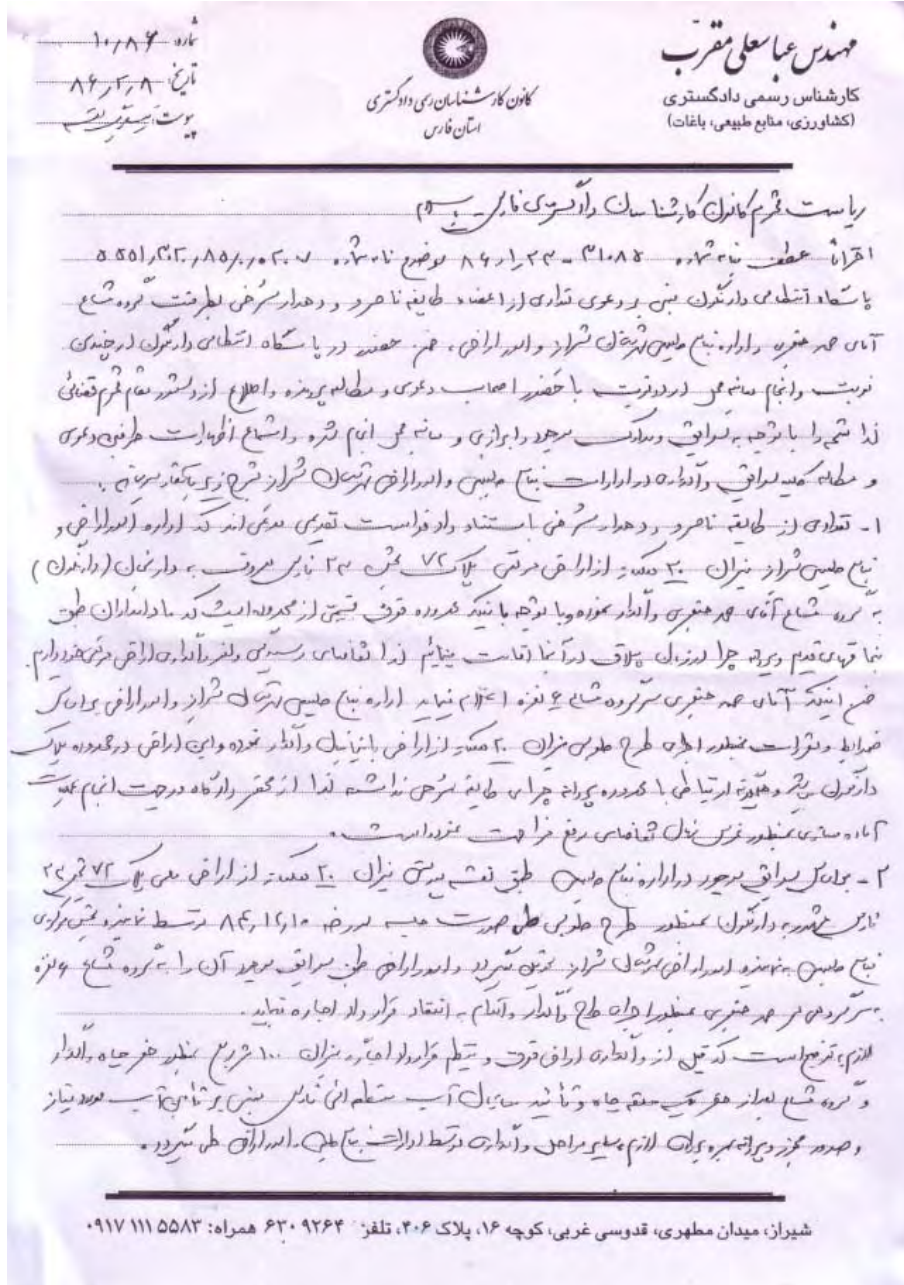 مهندس عباسعلی مقرب
کارشناس رسمی دادگستری
(کشاورزی، منابع طبیعی، باغات)
کانون کارشناسان رسمی دادگستری
استان فارس
شماره: ۱۰/۸۶
تاریخ: ۸۶/۲/۸
پیوست:
ریاست محترم کانون کارشناسان دادگستری فارس
احتراماً عطف بنامه شماره ۳۱۰۸۴ - ۸۶/۱/۲۳ موضوع نامه شماره
پاسگاه انتظامی دارنگون مبنی بر دعوی تعدادی از اعضاء طایفه ناصرو و دهدار سرخی بطرفیت گروه مشاع
آقای صفر صفری و اداره منابع طبیعی شهرستان شیراز و امور اراضی، ضمن حضور در پاسگاه انتظامی دارنگون در چندین
نوبت و انجام معاینه محل در دو نوبت با حضور اصحاب دعوی و مطالعه پرونده و اطلاع از دستور مقام محترم قضائی
لذا نتیجه را با توجه به سوابق و مدارک موجود و ابرازی و معاینه محل انجام شده و استماع اظهارات طرفین دعوی
و مطالعه کلیه سوابق واگذاری در ادارات منابع طبیعی و امور اراضی شهرستان شیراز بشرح زیر باستحضار میرساند.
۱- تعدادی از طایفه ناصرو و دهدار سرخی با استناد دادخواست تقدیمی مدعی اند که اداره امور اراضی و
منابع طبیعی شیراز میزان ۲۰ هکتار از اراضی مرتعی پلاک ۷۲ بخش ۲۳ فارس معروف به (دارنگون)
به گروه مشاع آقای واگذار نموده و با توجه باینکه محدوده فوق قسمتی از محدوده ایست که ما دامداران طبق
پروانه چرا در زمان ییلاق در آنجا اقامت مینمائیم لذا تقاضای رسیدگی و لغو واگذاری اراضی مرتعی خود داریم.
ضمن اینکه آقای سرگروه مشاع ۶ نفره اعلام مینماید اداره منابع طبیعی شهرستان شیراز و امور اراضی بر اساس
ضوابط و مقررات بمنظور اجرای طرح طوبی میزان ۲۰ هکتار از اراضی را باینجانبان واگذار نموده و این اراضی در محدوده پلاک
دارنگون میباشد و هیچگونه ارتباطی با محدوده پروانه چرای طایفه سرخی نداشته لذا از محضر دادگاه در جهت انجام عملیات
آماده سازی بمنظور غرس نهال تقاضای رفع مزاحمت نموده است.
۲- بر اساس سوابق موجود در اداره منابع طبیعی طبق نقشه پیوستی میزان ۲۰ هکتار از اراضی ملی پلاک ۷۲ بخش ۲۳
فارس مشهور به دارنگون بمنظور طرح طوبی طی صورت جلسه مورخه ۸۴/۱۲/۱۰ توسط نماینده بخش مرکزی
منابع طبیعی به نماینده امور اراضی شهرستان شیراز تحویل میگردد و امور اراضی طبق سوابق موجود آن را به گروه مشاع ۶ نفره
به سرگروهی بمنظور اجرای طرح واگذار و اقدام به انعقاد قرارداد اجاره مینماید.
لازم به توضیح است که قبل از واگذاری اراضی فوق و تنظیم قرارداد اجاره میزان ۱۰۰ مترمربع بمنظور حفر چاه واگذار
و گروه مشاع بعد از حفر یک حلقه چاه و تأئید سازمان آب منطقه ائی فارس مبنی بر تأمین آب مورد نیاز
و صدور مجوز و پروانه بهره برداری لازم، سایر مراحل واگذاری توسط ادارات منابع طبیعی و امور اراضی طی میگردد.
شیراز، میدان مطهری، قدوسی غربی، کوچه ۱۶، پلاک ۴۰۶، تلفن: ۶۳۰۹۲۶۴ همراه: ۰۹۱۷۱۱۱۵۵۸۳